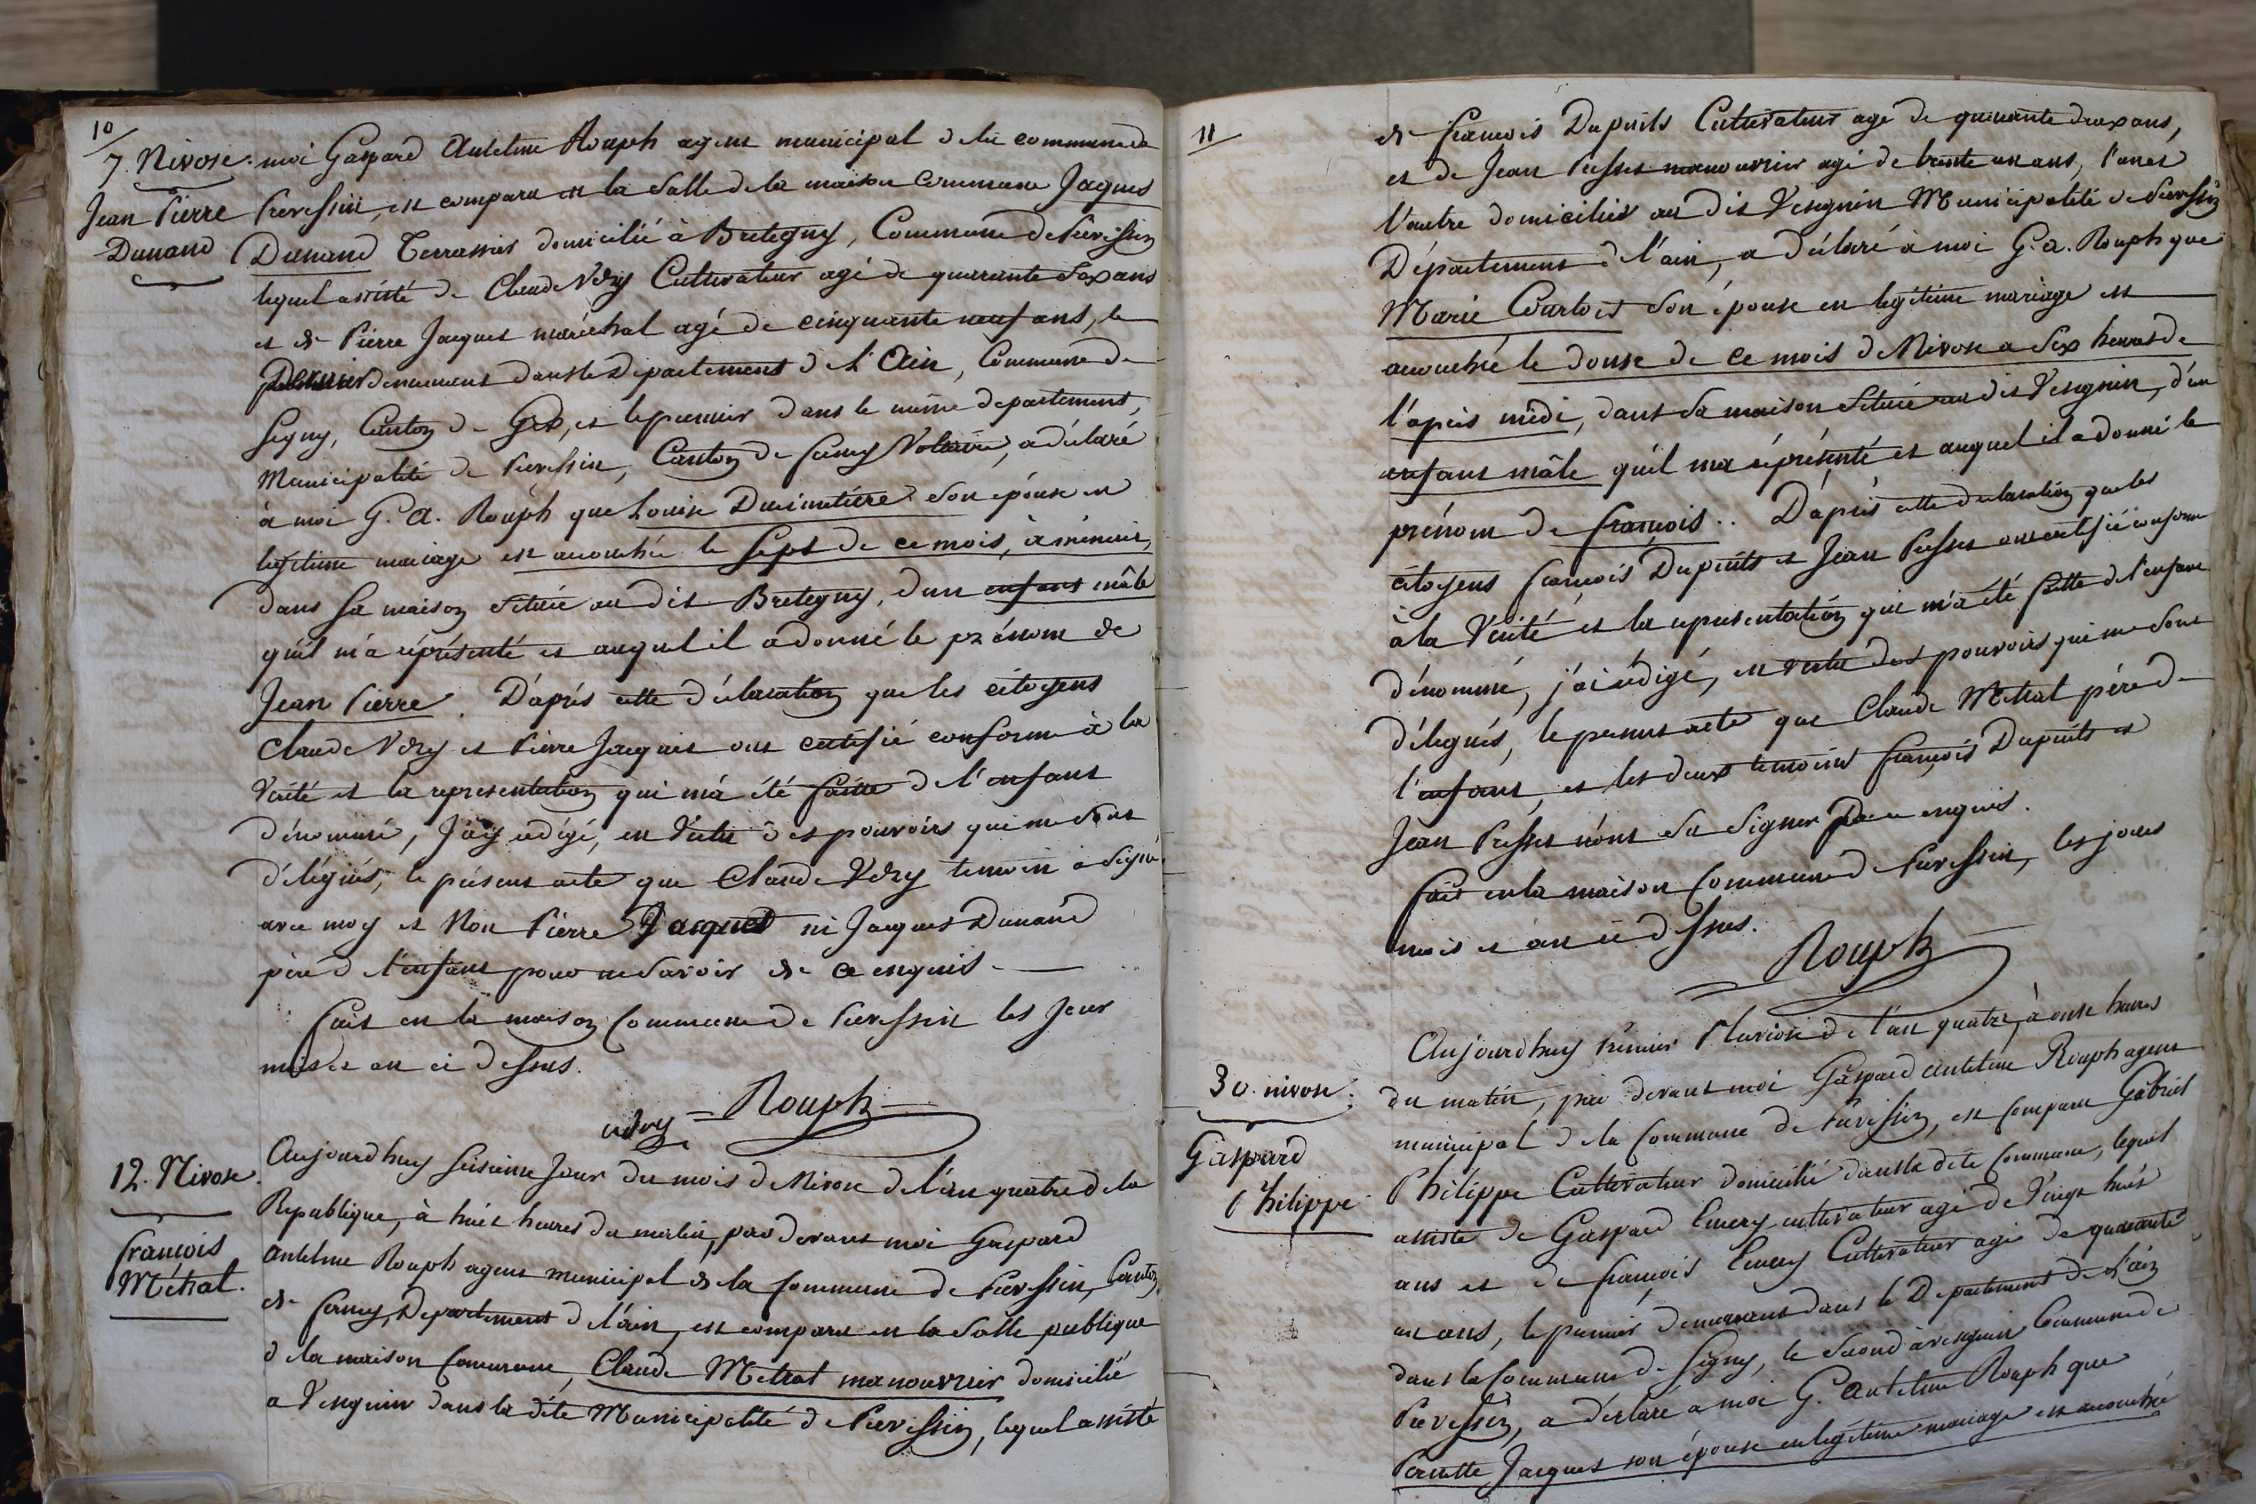 10
7. Nivose.
Jean Pierre
Dunand
moi Gaspard Antelme Rouph agent municipal de la commune de
Prevessin, est comparu en la Salle de la maison commune Jaques
Dunand Terrassier domicilié à Bretegny, Commune de Prevessin
lequel assisté de Claude Vdry Cultivateur agé de quarante Six ans
et de Pierre Jaques maréchal agé de cinquante neuf ans, le
Dernier demeurant dans le Departement de l'Ain, Commune de
Segny, Canton de Gex, et le premier dans le même departement,
Municipalité de Prevessin, Canton de ferney Voltaire, a déclaré
à moi G. A. Rouph que Louise Ducimetière son épouse en
legitime mariage est accouchée le Sept de ce mois, à minuit,
dans sa maison située au dit Bretegny, d'un enfant mâle
qu'il m'a réprésenté et auquel il a donné le prénom de
Jean Pierre. D'après cette déclaration que les citoyens
Claude Vdry et Pierre Jaques ont certifié conforme à la
Vérité et la representation qui m'a été faitte de l'enfant
dénommé, J'ay rédigé, en Vertu des pouvoirs qui me sont
délégués, le présent acte que Claude Vdry temoin a signé
avec moy et Non Pierre Jaques ni Jaques Dunand
père de l'enfant pour ne savoir de ce enquis.
fait en la maison Commune de Prevessin les Jour
mois et an ci dessus.
vdry Rouph
12. Nivose.
François
Métral.
Aujourd'huy seizieme Jour du mois de Nivose de l'an quatre de la
Republique, à huit heures du matin, par devant moi Gaspard
Antelme Rouph agent municipal de la Commune de Prevessin, Canton
de ferney, Departement de l'ain, est comparu en la Salle publique
de la maison Commune, Claude Metral manouvrier domicilié
a Vesegnin dans la dite Municipalité de Prevessin, lequel assisté
11
de françois Dupuits Cultivateur agé de quarante deux ans,
et de Jean Pesset manouvrier agé de trente un ans, l'un et
l'autre domiciliés au dit Vesegnin Municipalité de Prevessin
Département de l'ain, a déclaré à moi G. a. Rouph que
Marie Courtois son épouse en legitime mariage est
accouchée le douse de ce mois de Nivose a Six heures de
l'après midi, dans sa maison située au dit Vesegnin, d'un
enfant mâle qu'il m'a réprésenté et auquel il a donné le
prénom de françois. D'après cette declaration que les
citoyens françois Dupuits et Jean Pesset ont certifié conforme
à la Vérité et la representation qui m'a été faitte de l'enfant
dénommé, j'ai rédigé, en vertu des pouvoirs qui me sont
délegués, le present acte que Claude Metral père de
l'enfant, et les deux temoins françois Dupuits et
Jean Pesset n'ont su signer de ce enquis.
fait en la maison Commune de Prevessin, les jour
mois et an ci dessus.
Rouph
30 nivose.
Gaspard
Philippe
Aujourd'huy Premier Pluviose de l'an quatre, à onse heures
du matin, par devant moi Gaspard Antelme Rouph agent
municipal de la Commune de Prevessin, est comparu Gabriel
Philippe Cultivateur domicilié dans la dite Commune, lequel
assisté de Gaspard Emery cultivateur agé de Vingt huit
ans et de françois Emery Cultivateur agé de quarante
un ans, le premier demeurant dans le Departement de l'ain
dans la Commune de Segny, le Second à vesegnin Commune de
Prevessin, a déclaré à moi G. Antelme Rouph que
Pernette Jaques son épouse en legitime mariage est accouchée